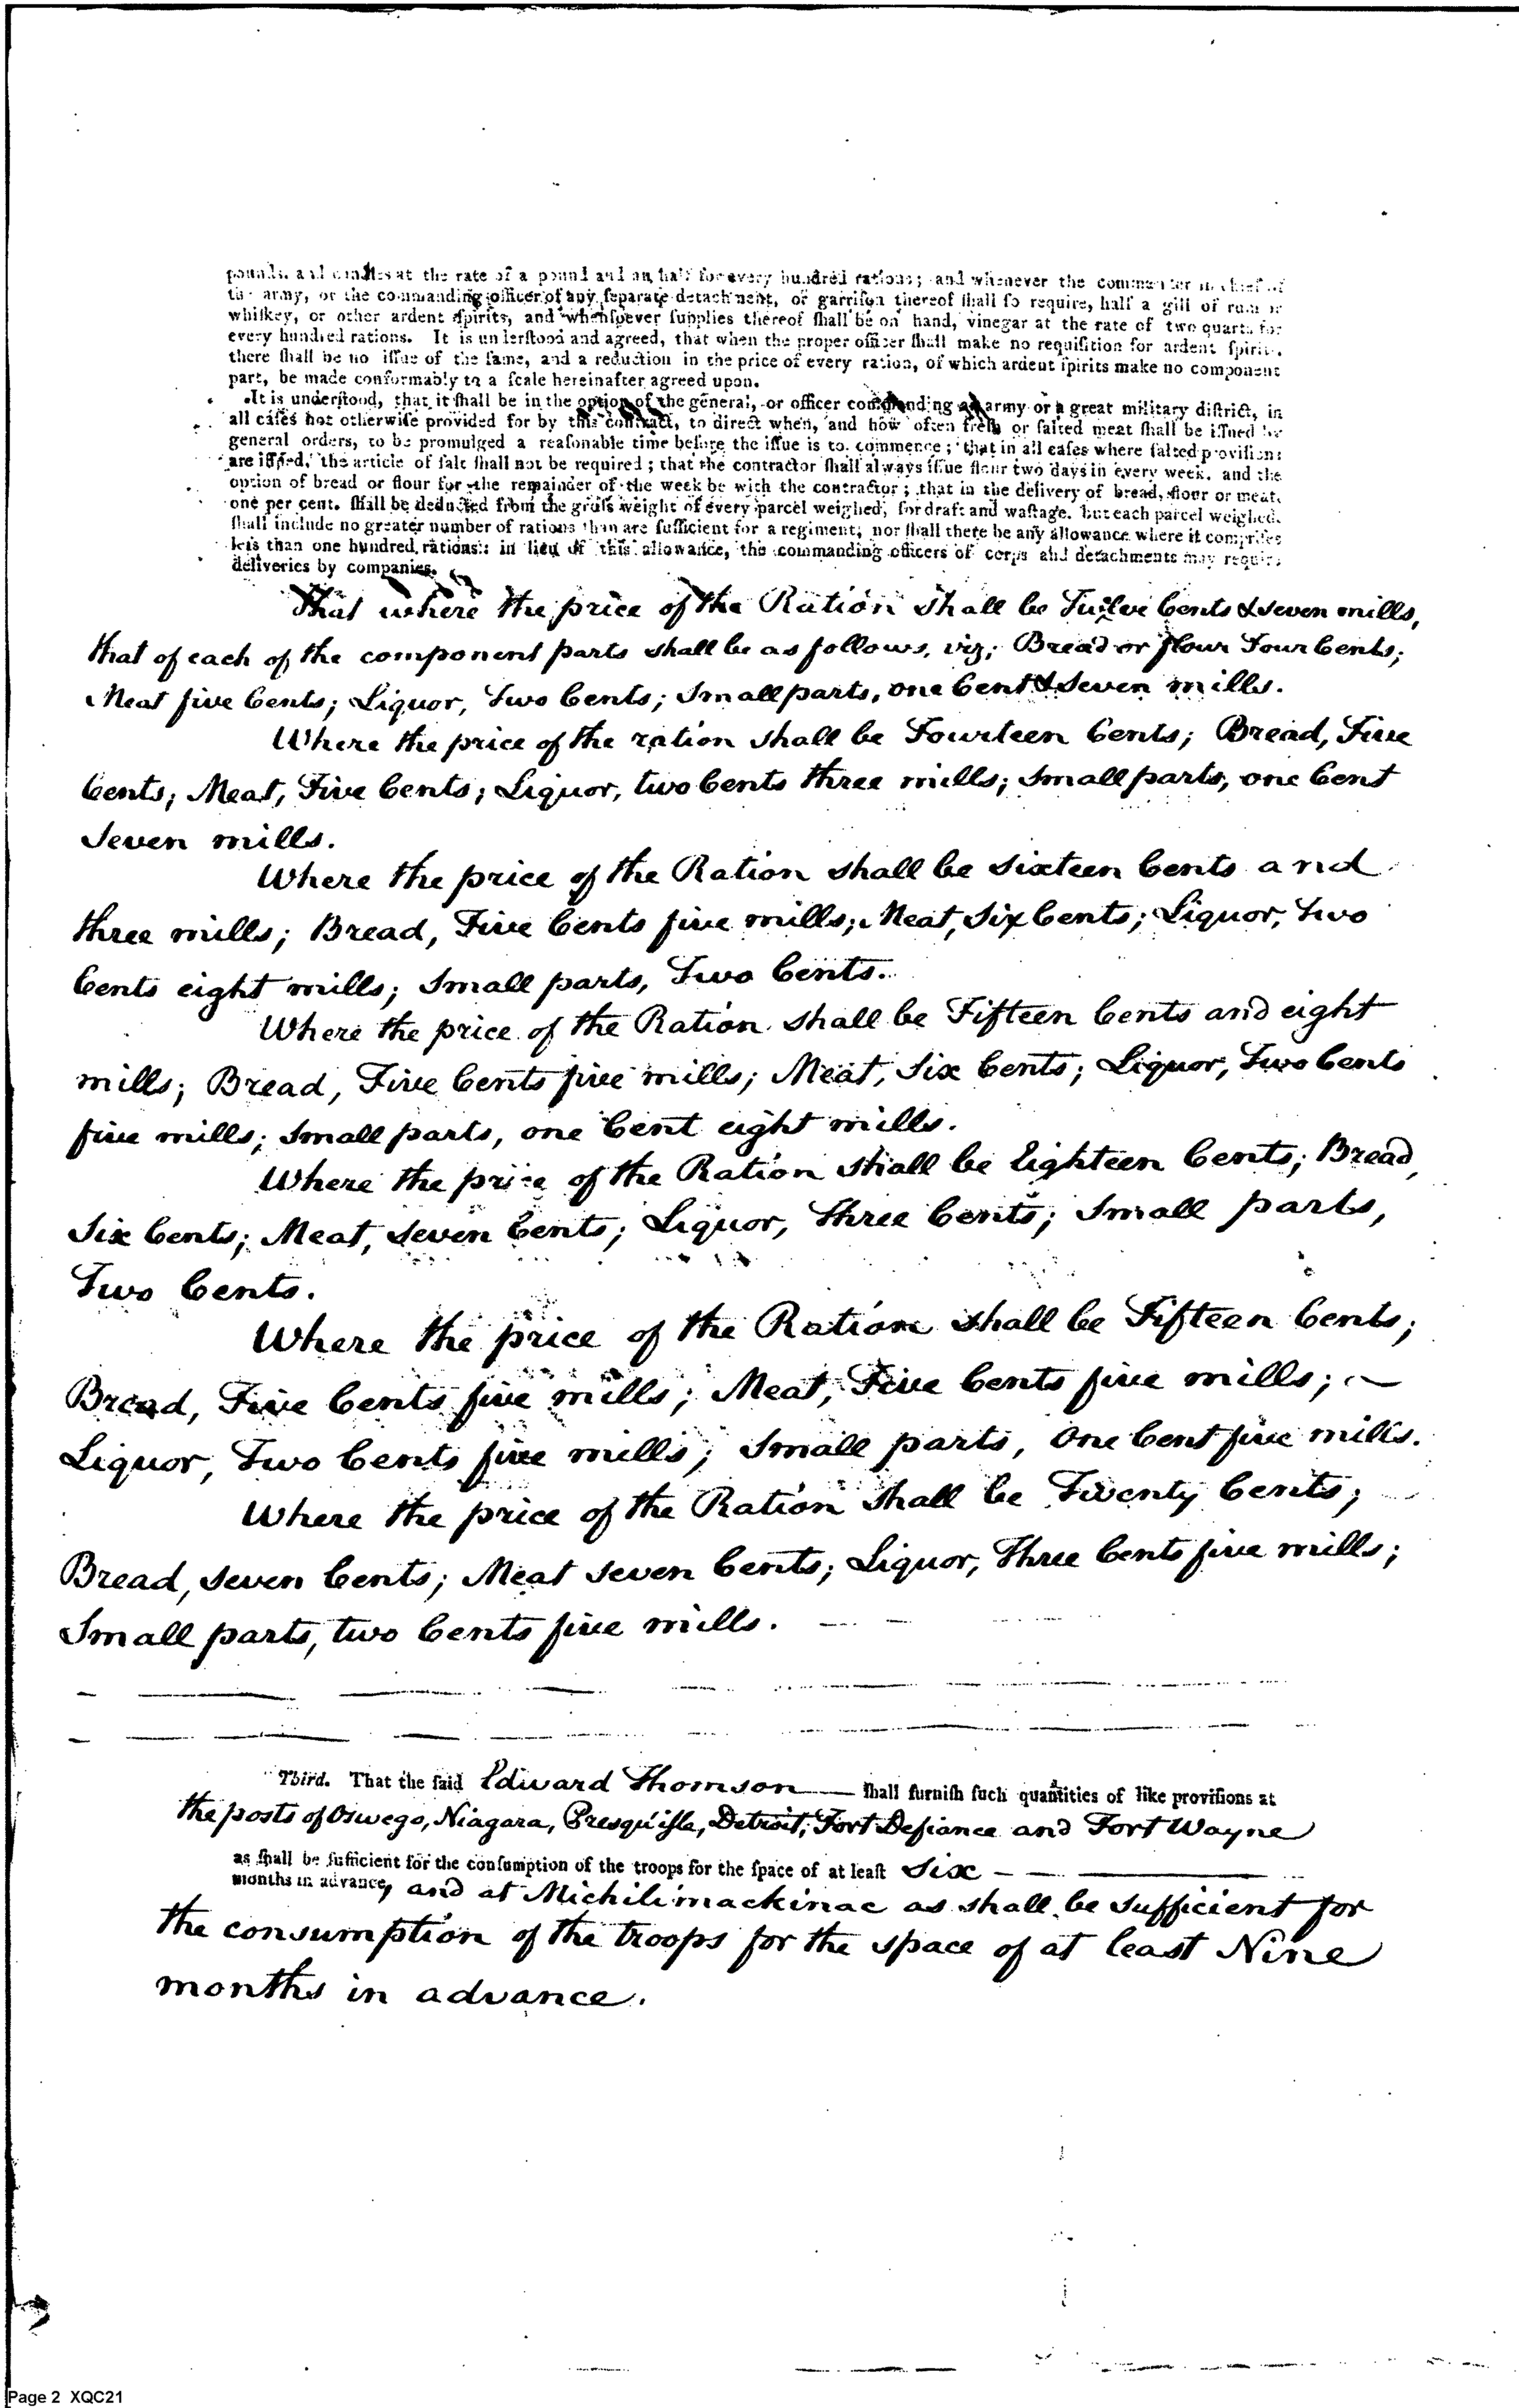 pounds. and candles at the rate of a pound and an half for every hundred rations; and whenever the commander in chief of
the army, or the commanding officer of any ſeparate detachment, or garriſon thereof ſhall ſo require, half a gill of rum or
whiſkey, or other ardent ſpirits, and whenſoever ſupplies thereof ſhall be on hand, vinegar at the rate of two quarts for
every hundred rations. It is underſtood and agreed, that when the proper officer ſhall make no requiſition for ardent ſpirits,
there ſhall be no iſſue of the ſame, and a reduction in the price of every ration, of which ardent ſpirits make no component
part, be made conformably to a ſcale hereinafter agreed upon.
It is underſtood, that it ſhall be in the option of the general, or officer commanding an army or a great military diſtrict, in
all caſes not otherwiſe provided for by this contract, to direct when, and how often freſh or ſalted meat ſhall be iſſued by
general orders, to be promulged a reaſonable time before the iſſue is to commence; that in all caſes where ſalted proviſions
are iſſued, the article of ſalt ſhall not be required; that the contractor ſhall always iſſue flour two days in every week, and the
option of bread or flour for the remainder of the week be with the contractor; that in the delivery of bread, flour or meat,
one per cent. ſhall be deducted from the groſs weight of every parcel weighed, for draft and waſtage, but each parcel weighed,
ſhall include no greater number of rations than are ſufficient for a regiment; nor ſhall there be any allowance where it compriſes
leſs than one hundred rations: in lieu of this allowance, the commanding officers of corps and detachments may require
deliveries by companies.
That where the price of the Ration shall be Twelve Cents & seven mills,
that of each of the component parts shall be as follows, viz; Bread or flour Four Cents;
Meat five Cents; Liquor, Two Cents; Small parts, one Cent & Seven mills.
Where the price of the ration shall be Fourteen Cents; Bread, Five
Cents; Meat, Five Cents; Liquor, two Cents three mills; Small parts, one Cent
Seven mills.
Where the price of the Ration shall be sixteen Cents and
three mills; Bread, Five Cents five mills; Meat, Six Cents; Liquor, Two
Cents eight mills; Small parts, Two Cents.
Where the price of the Ration shall be Fifteen Cents and eight
mills; Bread, Five Cents five mills; Meat, Six Cents; Liquor, Two Cents
five mills; Small parts, one Cent eight mills.
Where the price of the Ration shall be Eighteen Cents; Bread,
Six Cents; Meat, seven Cents; Liquor, Three Cents; Small parts,
Two Cents.
Where the price of the Ration shall be Fifteen Cents;
Bread, Five Cents five mills; Meat, Five Cents five mills;
Liquor, Two Cents five mills; Small parts, One Cent five mills.
Where the price of the Ration shall be Twenty Cents;
Bread, seven Cents; Meat seven Cents; Liquor, Three Cents five mills;
Small parts, two Cents five mills.
Third. That the ſaid Edward Thomson ſhall furniſh ſuch quantities of like proviſions at
the posts of Oswego, Niagara, Presqu'isle, Detroit, Fort Defiance and Fort Wayne
as ſhall be ſufficient for the conſumption of the troops for the ſpace of at leaſt Six
months in advance, and at Michilimackinac as shall be sufficient for
the consumption of the troops for the space of at least Nine
months in advance.
Page 2 XQC21